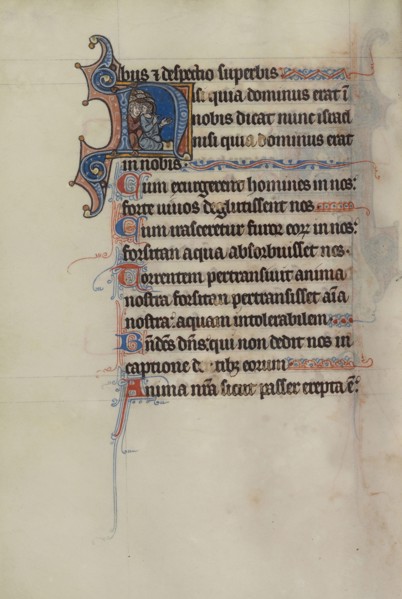 bus ⁊ despectio superbis
Nisi quia dominus erat ī
nobis dicat nunc israel
nisi quia dominus erat
in nobis.
Cum exurgerent homines in nos:
forte uiuos deglutissent nos
Cum irasceretur furor eoꝝ in nos:
forsitan aqua absorbuisset nos.
Torrentem pertransiuit anima
nostra forsitan pertransisset aīa
nostra: aquam intolerabilem.
Bn̄dc̄s dn̄s: qui non dedit nos in
captione dentibꝫ eorum
Anima nr̄a sicut passer erepta ē: